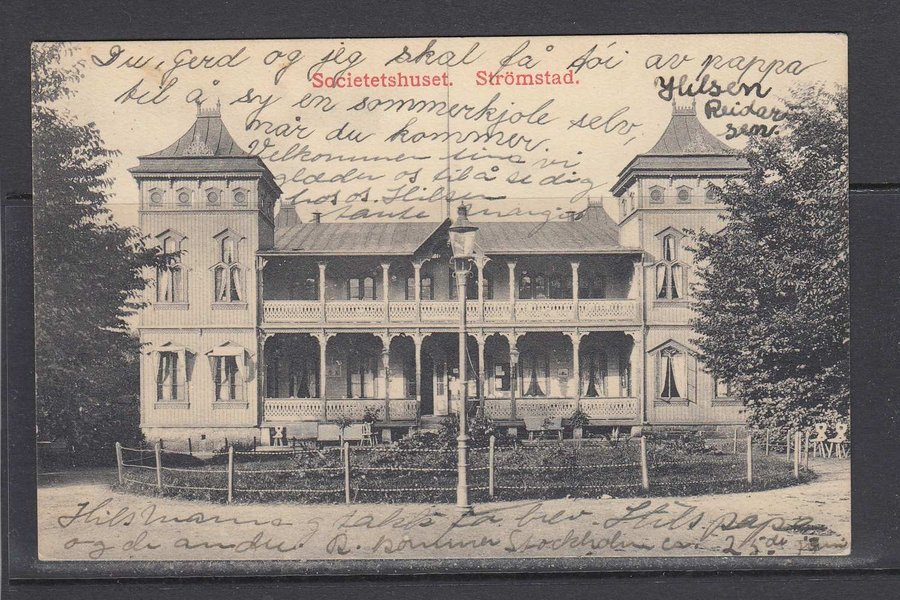 Du, Gerd og jeg skal få tøi av pappa
Societetshuset. Strömstad.
til å sy en sommerkjole selv,
når du kommer.
Hilsen
Reidar
sen.
Velkommen vi
glæder os til å se dig
hos os. Hilsen
tante
Hils mamma og takk for brev. Hils pappa
og de andre. R. kommer Stockholm ca. 25de juni